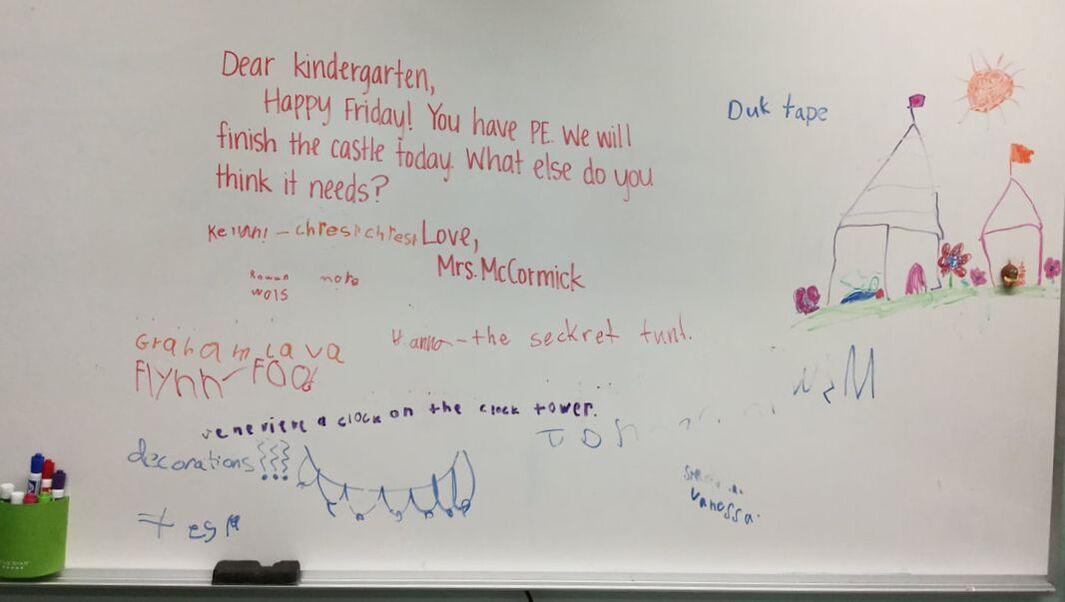 Dear kindergarten,
Happy Friday! You have PE. We will
finish the castle today. What else do you
think it needs?
Duk tape
chrest chrest
Love,
Mrs. McCormick
Rowan mote
wols
Graham lava
Flynn - FOOd
Hanna - the seckret tunl.
a clock on the clock tower.
decorations
Vanessa.